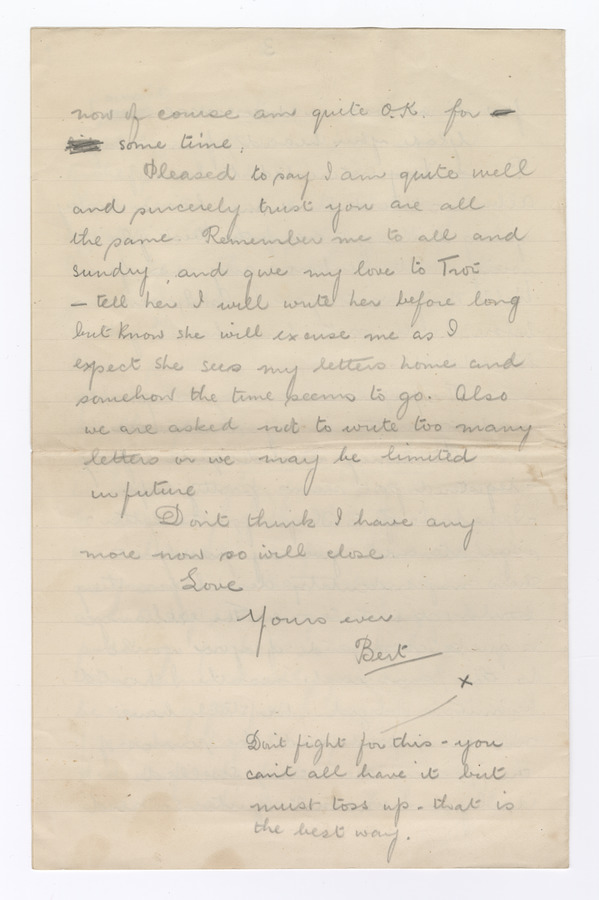 now of course am quite O.K. for
some time.
Pleased to say I am quite well
and sincerely trust you are all
the same. Remember me to all and
sundry, and give my love to Trot
– tell her I will write her before long
but know she will excuse me as I
expect she sees my letters home and
somehow the time seems to go. Also
we are asked not to write too many
letters or we may be limited
in future
Don't think I have any
more now so will close
Love
Yours ever
Bert
x
Don't fight for this - you
can't all have it but
must toss up - that is
the best way.